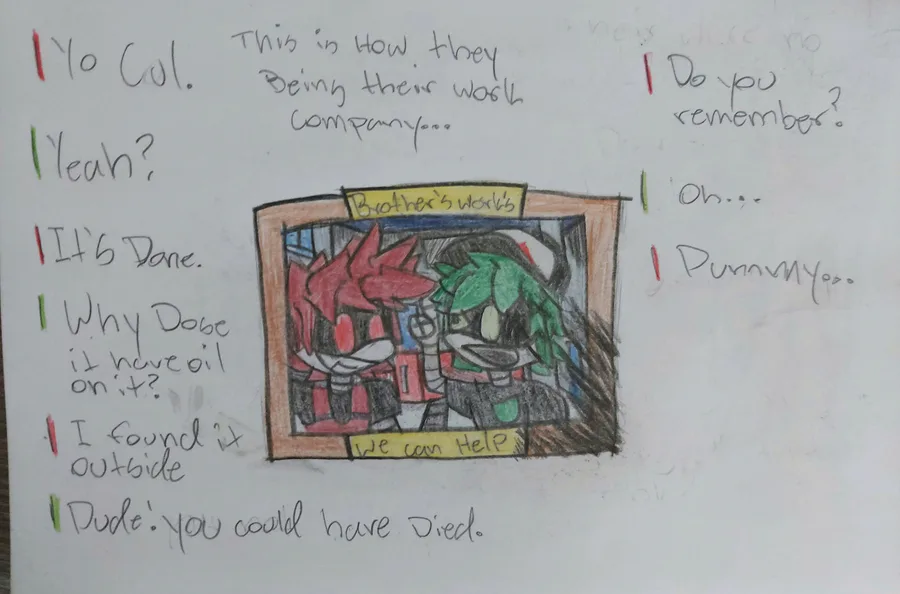 Yo Col.
Yeah?
It's Done.
Why Dose
it have oil
on it?
I found it
outside
Dude! you could have Died.
This is How they
Being their work
company...
Brother's work's
We can Help
Do you
remember?
Oh...
Dummy...